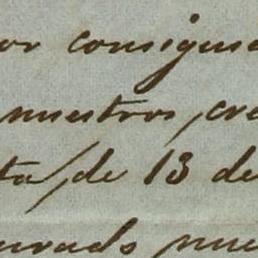 or consigui
nuestros, cre
ta, de 13 de
urado nue